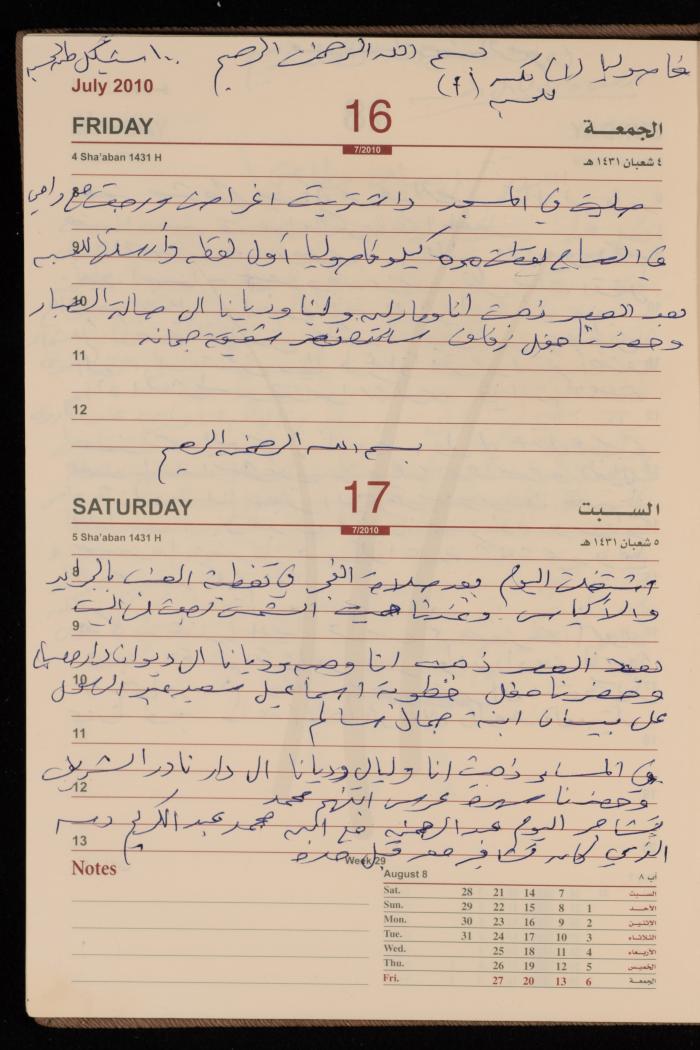 بسم الله الرحمن الرحيم
١٠٠ شيكل
July 2010
FRIDAY 16 الجمعة
4 Sha'aban 1431 H 7/2010 ٤ شعبان ١٤٣١ هـ
صليت في المسجد واشتريت اغراض ورجعت مع رامي
9
في الصباح لقطت كيلو فاصوليا أول لقطه وأرسلتها للحسبه
10
بعد العصر ذهبت انا و ولينا وديانا الى صالة الصبار
وحضرنا حفل زفاف شقيقة جمانه
11
12
بسم الله الرحمن الرحيم
SATURDAY 17 السبت
5 Sha'aban 1431 H 7/2010 ٥ شعبان ١٤٣١ هـ
8
اشتغلت اليوم بعد صلاة الفجر في تغطية العنب بالجرايد
والأكياس وعدنا الشمس البيت
9
بعد العصر ذهبت انا وديانا الى ديوان دار
10
وحضرنا حفل خطوبة اسماعيل سعيد عبد
على بيسان ابنة جمال سالم
11
في المساء ذهبت انا وليال وديانا الى دار نادر الشريف
12
وحضرنا سهرة عرس ابنهم محمد
تشاجر اليوم عبد الرحمن مع ابن محمد عبد الكريم
13
الذي كان تشاجر معه قبل مده
Notes
Week 29
August 8 آب ٨
Sat. 28 21 14 7 السبت
Sun. 29 22 15 8 1 الأحد
Mon. 30 23 16 9 2 الاثنين
Tue. 31 24 17 10 3 الثلاثاء
Wed. 25 18 11 4 الأربعاء
Thu. 26 19 12 5 الخميس
Fri. 27 20 13 6 الجمعة